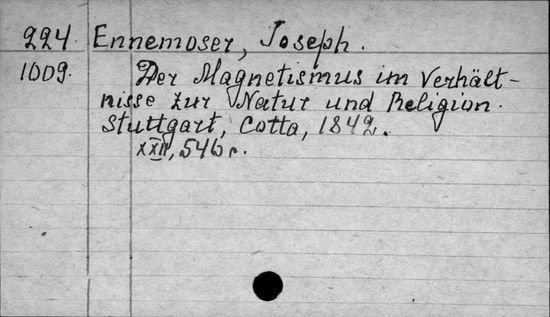 224. Ennemoser, Joseph.
1009. Der Magnetismus im Verhält-
nisse zur Natur und Religion.
Stuttgart, Cotta, 1842.
XXII, 546 c.